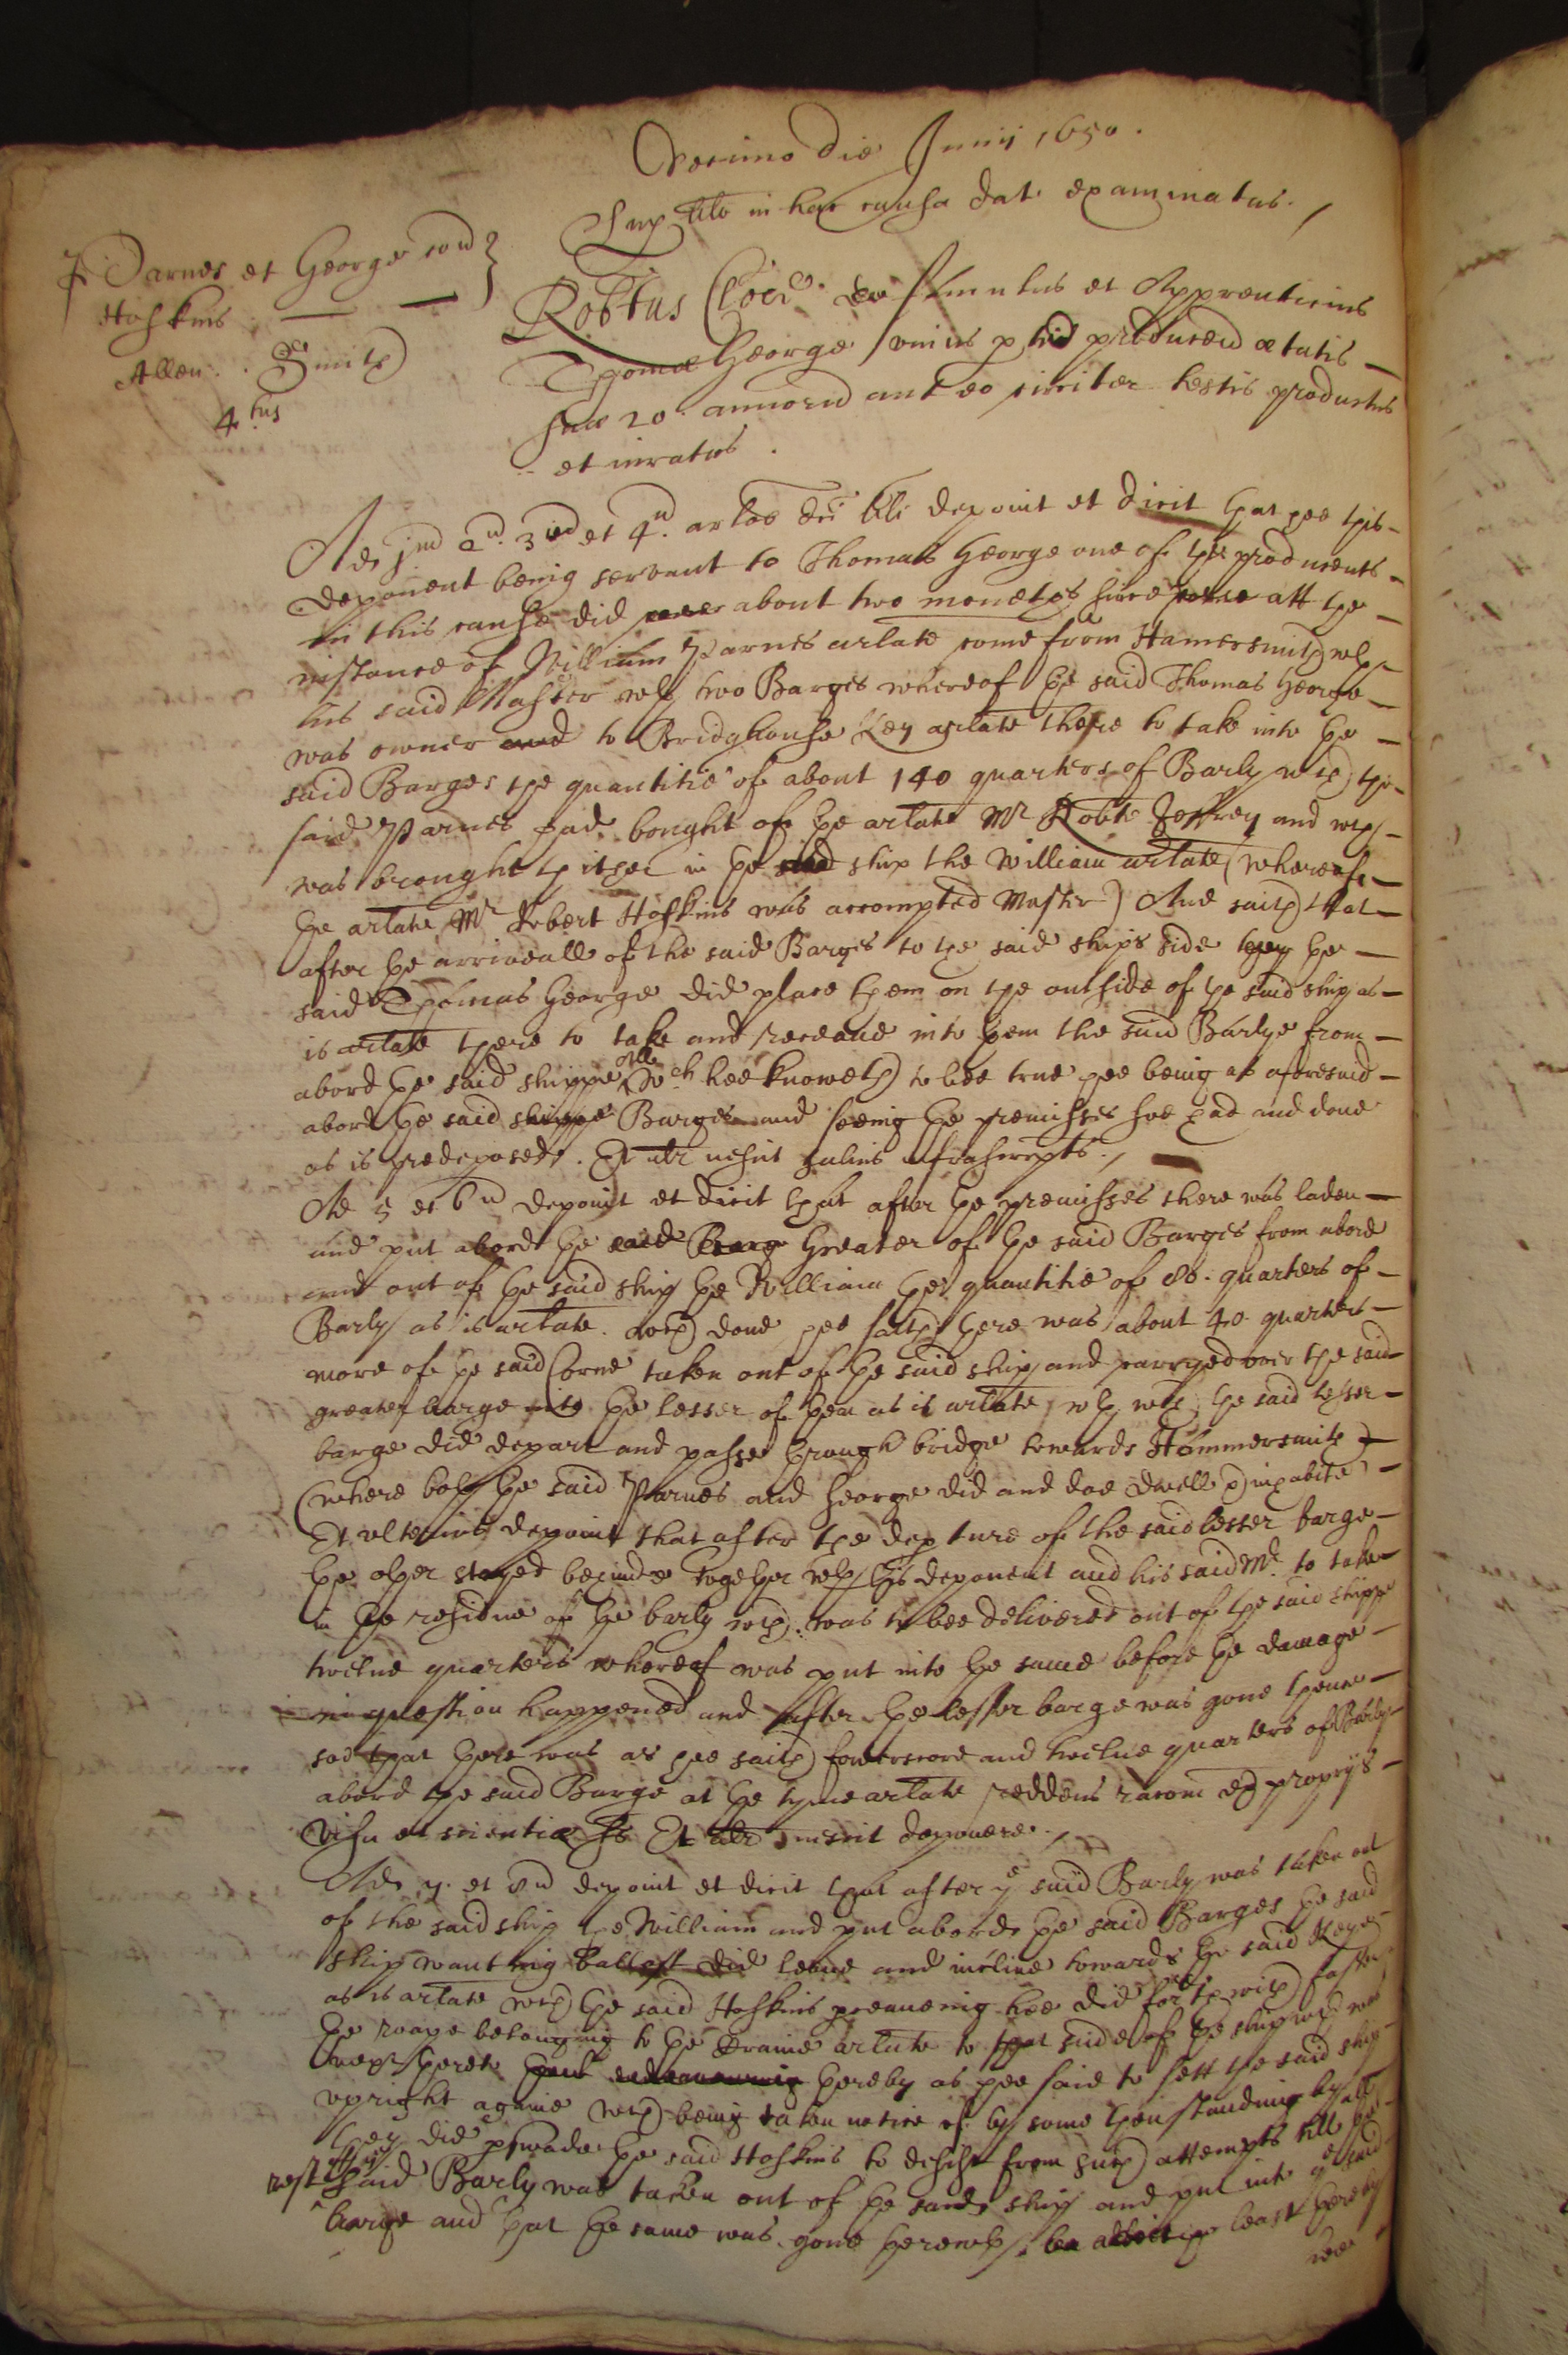 Decimo die Junij 1650.
Sup lilo in hac causa dat examinatus./
Parnes et George con
Hoskins
Allen. Smith
4.tus
Robtus famulus et Apprenticius
Thomæ George unius producen ætatis
suæ 20 annorū aut eo circiter testis productus
et iuratus.
Ad jm 2d. 3ied et 4d. arlos dci lili deponit et dicit that hee this
deponent being servant to Thomas George one of the producents
in this cause did about two monethes since att the
instance of William Parnes arlate come from Hamersmith wth
his said Master wth two Barges whereof the said Thomas George
was owner and to Bridghouse Key arlate there to take into the
said Barges the quantitie of about 140 quarters of Barly wch the
said Parnes had bought of the arlate Mr Robte Joffrey and wch
was brought thither in the said ship the William arlate (whereof
the arlate Mr Robert Hoskins was accompted Master) And saith that
after the arriveall of the said Barges to the said ships side they the
said Thomas George did place them on the outside of the said ship as
is arlate there to take and receave into them the said Barlye from
abord the said shippe All wch hee knoweth to bee true hee being as aforesaid
abord the said shippe Barges and seeing the premisses soe had and done
as is predeposed. Et alr nescit salvis infrascriptis./
Ad 5 et 6d deponit et dicit that after the premisses there was laden
and put abord the said Barge Greater of the said Barges from abord
and out of the said ship the William the quantitie of 80. quarters of
Barly as is arlate. wch done hee saith there was about 40 quarters
more of the said Corne taken out of the said ship and carryed over the said
greater barge into the lesser of them as is arlate, wth wch the said lesser
barge did depart and passe through bridge towards Hammersmith
(where both the said Parnes and George did and doe dwell & inhabite)
Et ulterius deponit that after the depture of the said lesser barge
the other stayed behinde together wth this deponent and his said Mr. to take
in the residue of the barly wch was to bee delivered out of the said shippe
twelve quarters whereof was put into the same before the damage
in question happened and after the lesser barge was gone thence
soe that there was as hee saith fowerscore and twelve quarters of Barly
abord the said Barge at the tyme arlate reddens racom ex proprijs
visu et scientia Et alr nescit deponere./
Ad 7. et 8d deponit et dicit that after ye said Barly was taken out
of the said ship the William and put abord the said Barges the said
ship wanting ballast did leane and incline towards the said Keye
as is arlate wch the said Hoskins preceaveing hee did forthwith fasten
the roape belonging to the Crane arlate to that side of the ship wch was
next thereto thereby as hee said to sett the said ship
upright againe wch being taken notice of by some then standing by all
they did pswade the said Hoskins to desist from such attempts till the
rest of the said Barly was taken out of the said ship and put into ye said
barge and that the same was gone therewth, least thereby